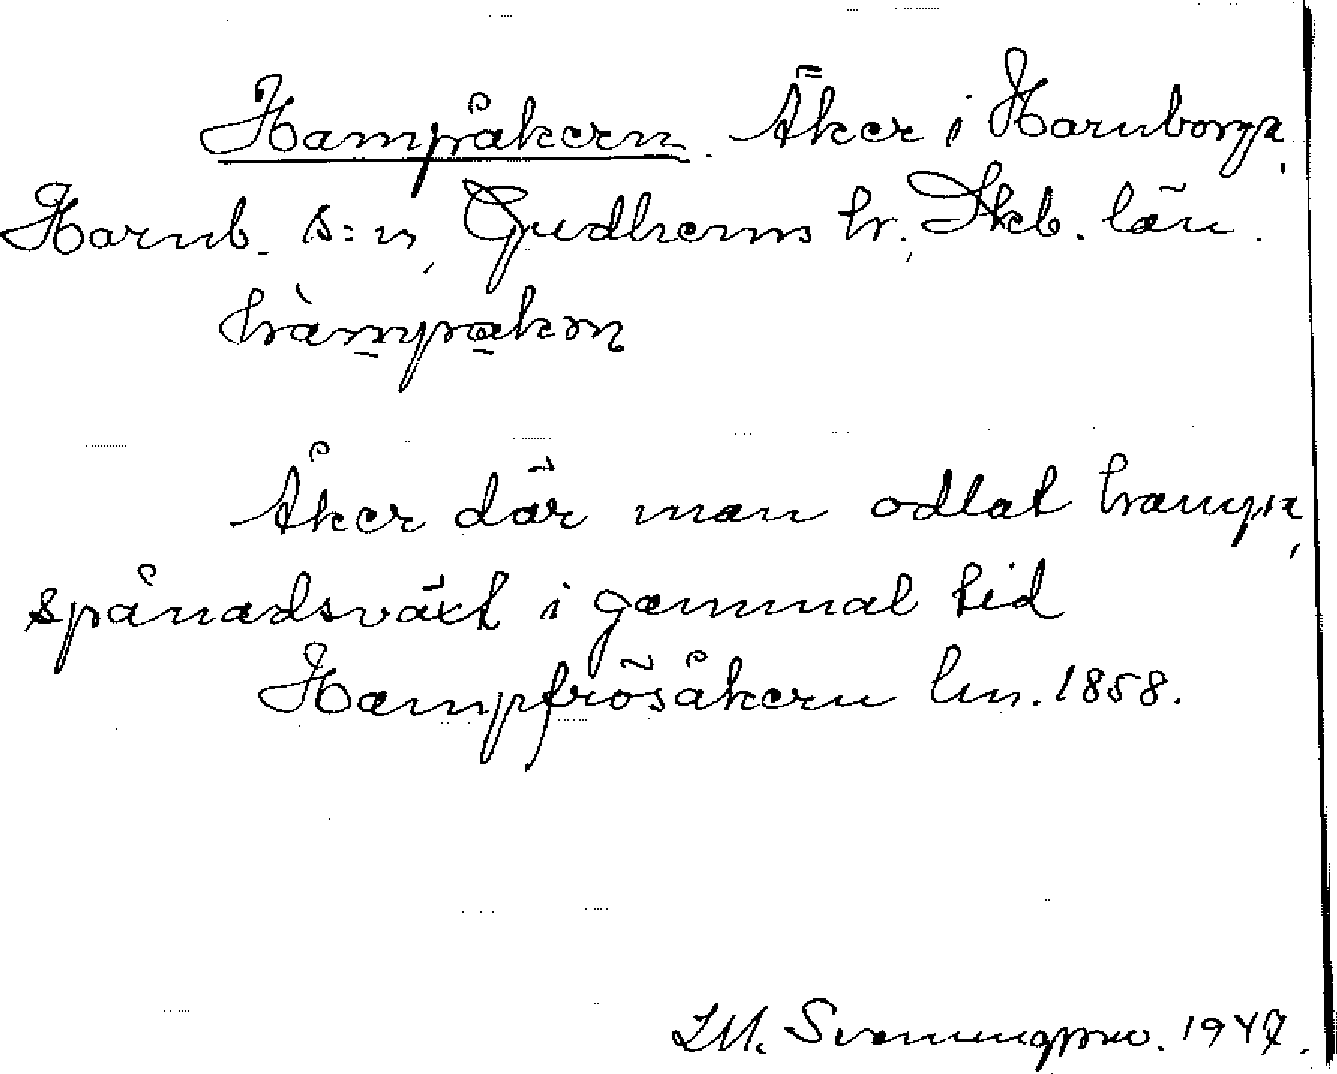 Hampåkern. Åker i Hornborga,
Hornb. s:n, Gudhems hr., Skb. län.
hàmpakɷn
Åker där man odlat hampa,
spånadsväxt i gammal tid
Hampfrösåkern lm. 1858.
J.M. Svenungsson. 1947.